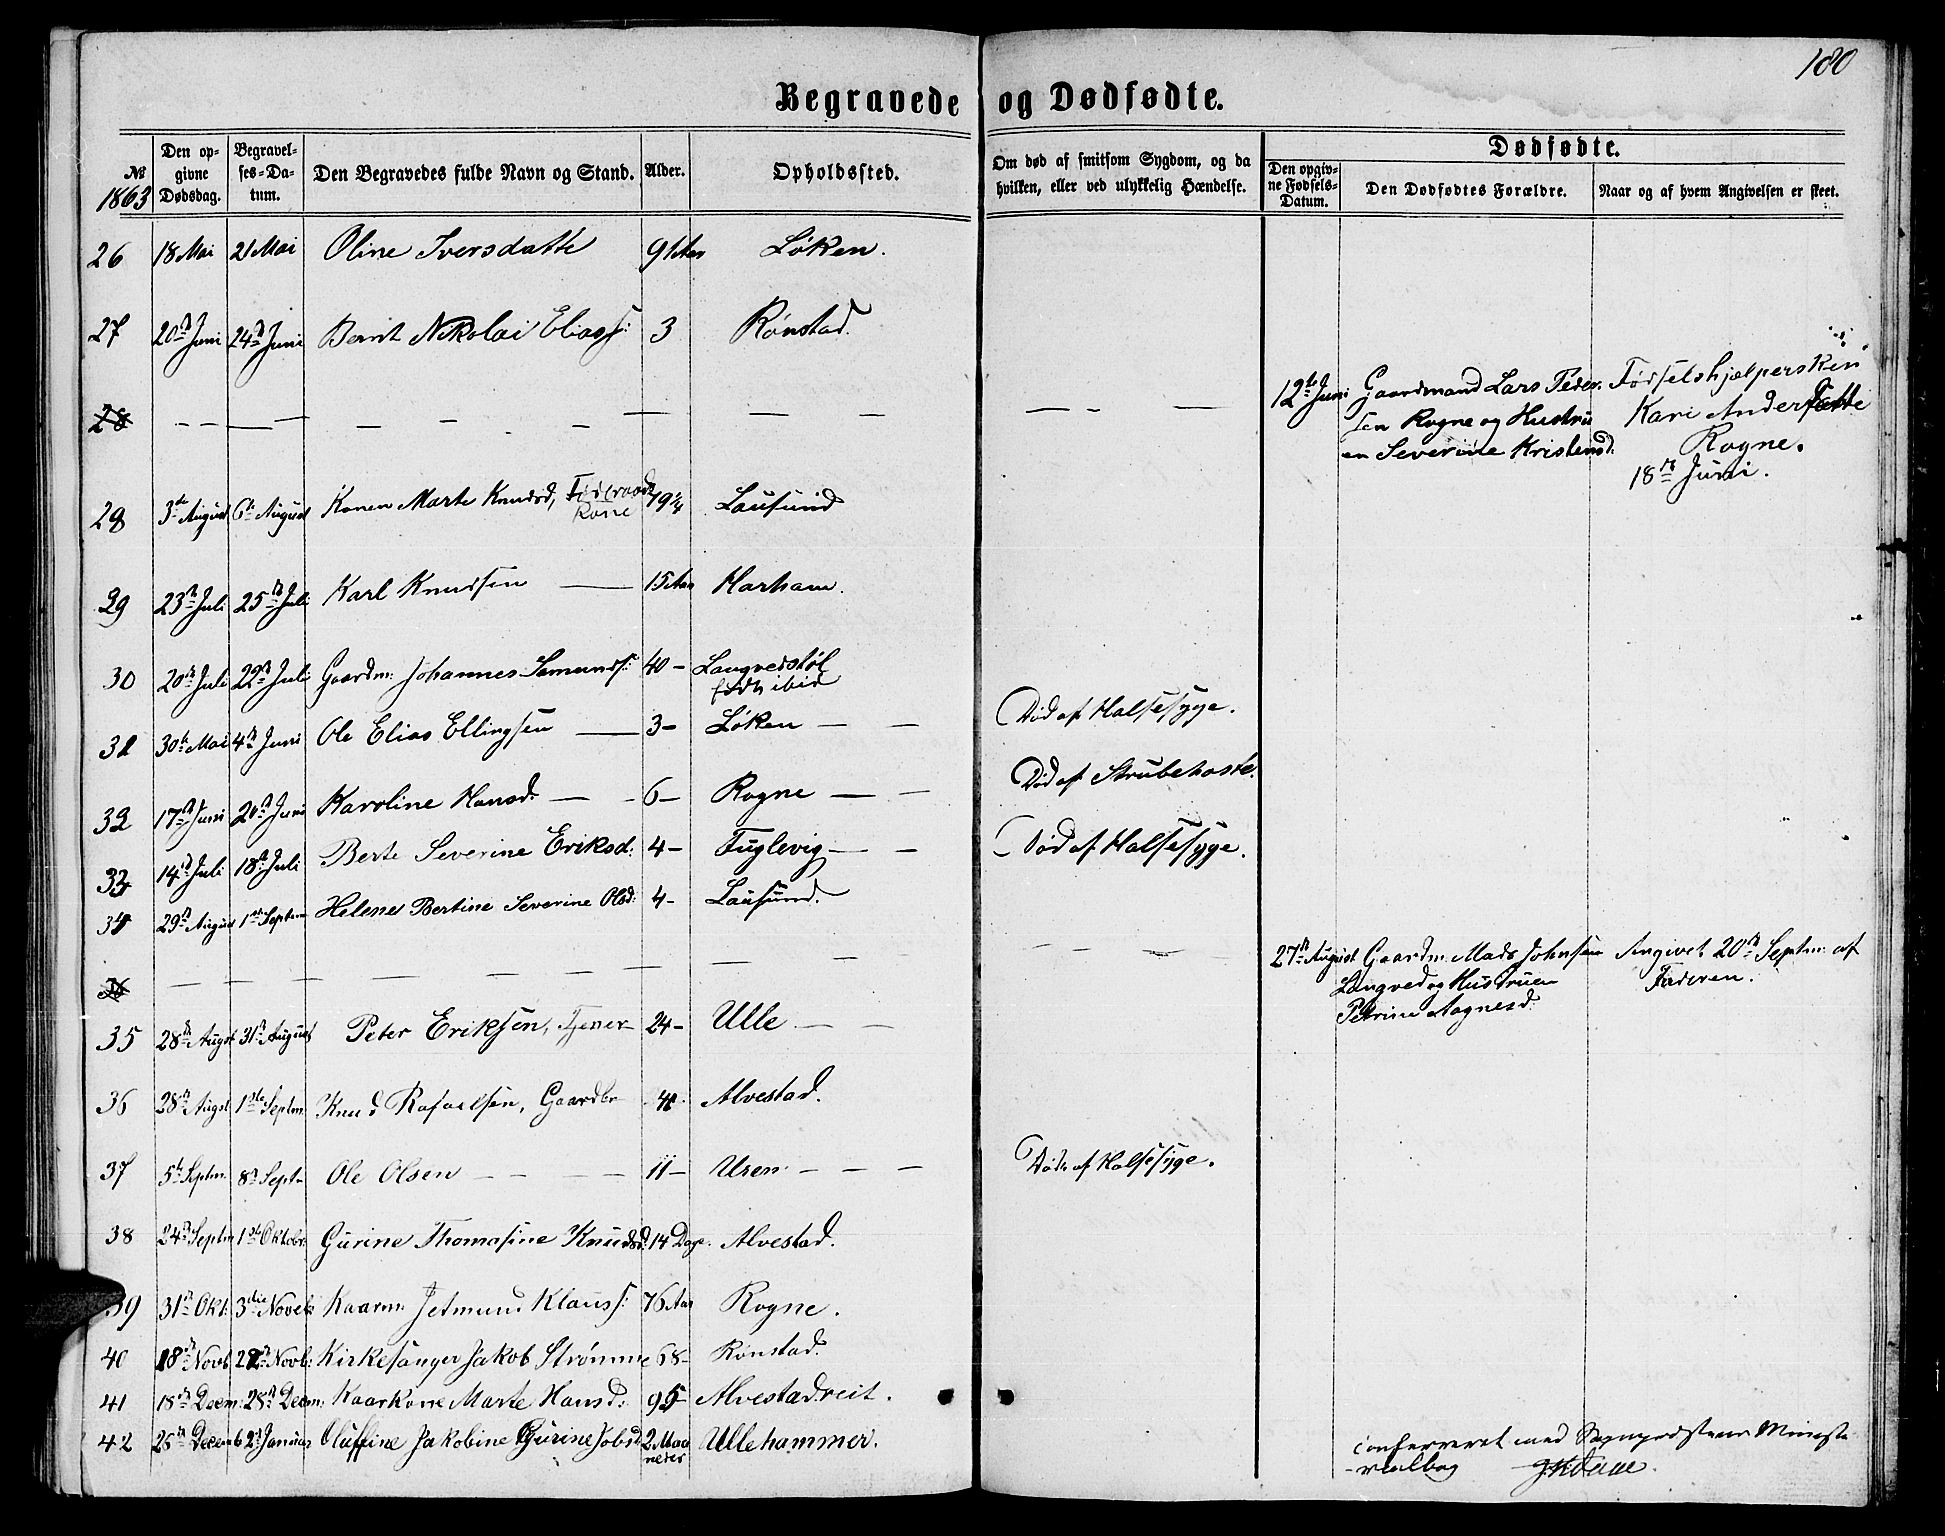 180
Begravede og Dødfødte.
№ 1863
Den opgivne Dødsdag.
Begravelses-Datum.
Den Begravedes fulde Navn og Stand.
Alder.
Opholdssted.
Om død af smitsom Sygdom, og da hvilken, eller ved ulykkelig Hændelse.
Dødfødte.
Den opgivne Fødsels-Datum.
Den Dødfødtes Forældre.
Naar og af hvem Angivelsen er skeet.
26 18 Mai 21 Mai Oline Iversdatte 91 Aar Løken.
27 20de Juni 24de Juni Bernt Nikolai Eliass: 3 Rønstad.
28 — — — — — — — — — — — 12te Juni Gaardmand Lars Peder- Fødselshjælpersken
sen Rogne og Hustru Kari Andersdatte
en Severine Kristensd: Rogne.
18de Juni.
28 3de August 6te August Konen Marte Knudsd, Føderaads 79 ¼ Lausund
Kone
29 23de Juli 25de Juli Karl Knudsen — 15 Aar Harham.
30 20de Juli 22de Juli Gaardm: Johannes Samunds: 40 - Langvedstøl
født ibid
31 30te Mai 4de Juni Ole Elias Ellingsen — 3 - Løken — — Død af Halsesyge.
32 17de Juni 20de Juni Karoline Hansd: — - 6 - Rogne — — Død af Strubehoste.
33 14de Juli 18de Juli Berte Severine Eriksd: 4 - Fuglevig — — Død af Halsesyge.
34 29de August 1ste Septem Helene Bertine Severine Olsd: 4 - Lausund.
— — — — — — — — — — — 27de August Gaardm: Mads Johnsen Angivet 20de Septm: af
Langved og Hustruen Faderen.
Petrine Aagnesd:
35 28de Augst 31te August Peter Eriksen, Tjener 24 - Ulle — —
36 28de Augst 1ste Septm: Knud Rafaelsen, Gaardbr Alvestad.
37 5te Septm: 8de Septm Ole Olsen — — — 11 - Uren — — — Død af Halsesyge.
38 24de Septm 1ste Oktobr: Gurine Thomasine Knudsd: 14 Dage. Alvestad.
39 31te Okt: 3die Noveb Kaarm: Jetmund Klauss: 76 Aar Rogne.
40 18de Novb Novb: Kirkesanger Jakob Strømme 68 - Rønstad.
41 18de Decm: 28de Decm: Kaarkone Marte Hansd: 95 - Alvestadreit.
42 Decem Januar Oluffine Jakobine Gurine Jobsd 2 Maa Ullehammer.
neder
Confereret med Sognepræstens Ministe-
-rialbog